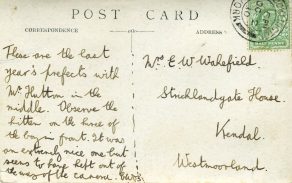 POST CARD
CORRESPONDENCE
ADDRESS
These are the last
year's prefects with
Mr Hutton in the
middle. Observe the
kitten on the knee of
the boy in front. It was
an extremely nice one but
seems to have kept out of
the way of the camera.
Mrs E W Wakefield
Stricklandgate House.
Kendal
Westmoorland.
HALF PENNY